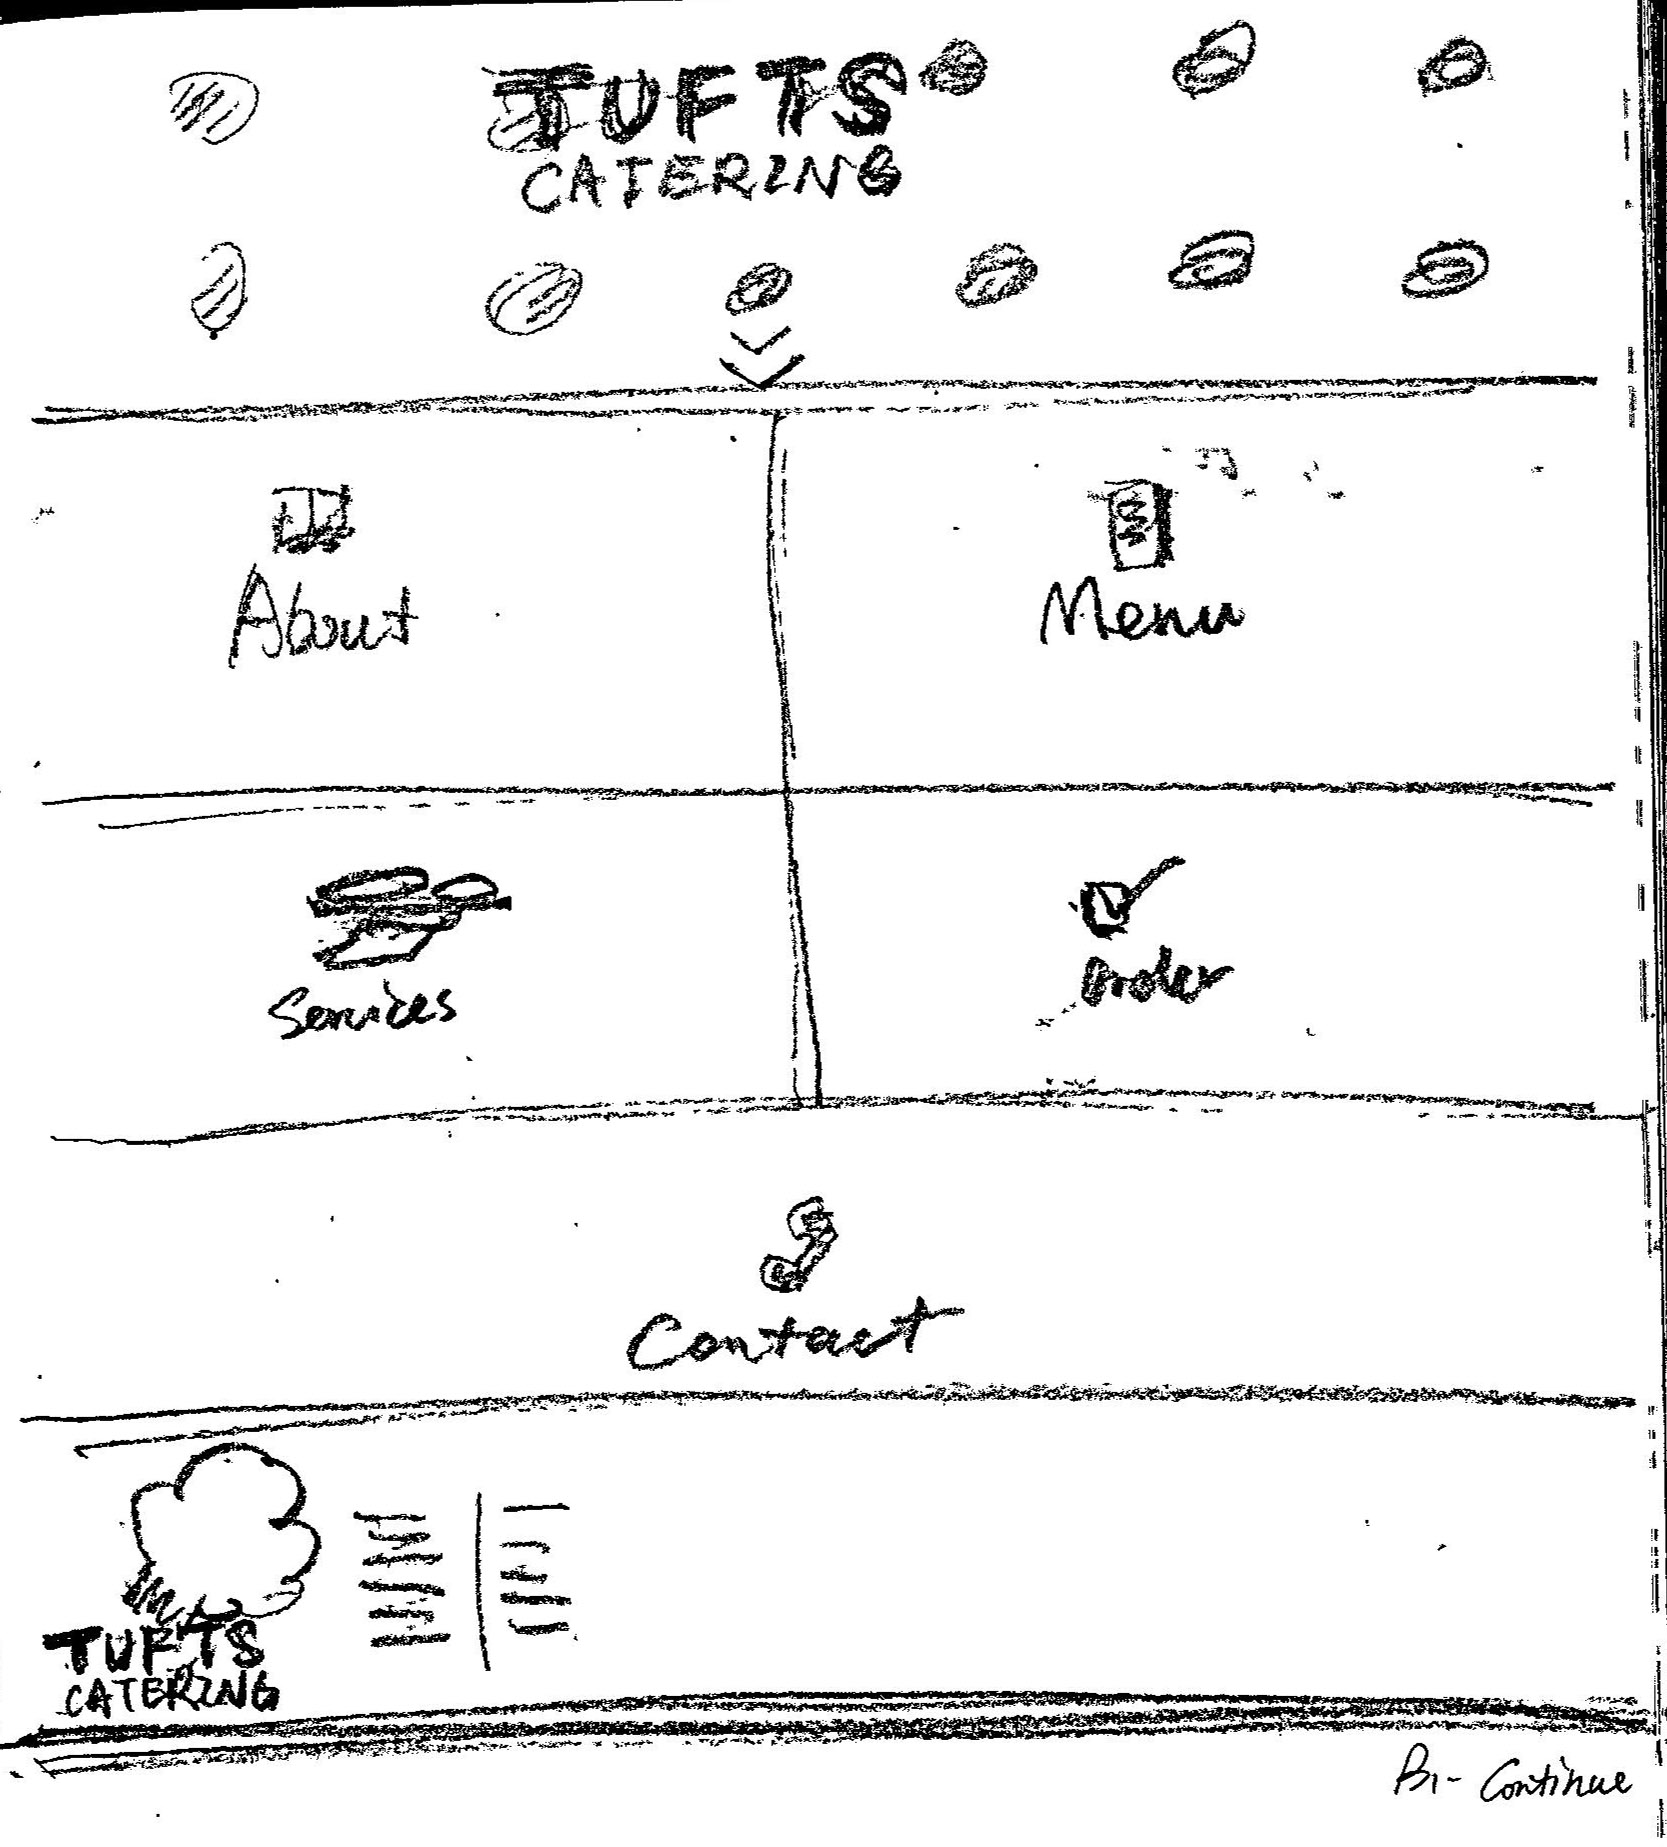 TUFTS
CATERING
About
Menu
Services
Order
Contact
TUFTS
CATERING
Continue